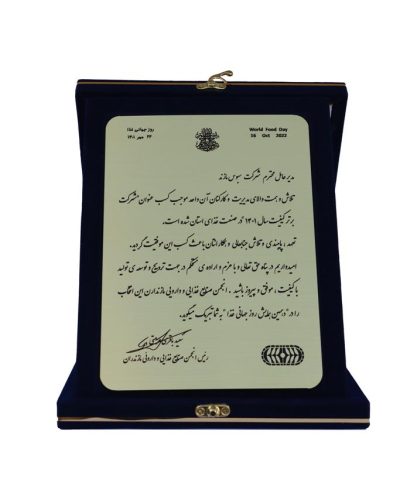 روز جهانی غذا
World Food Day
16 Oct 2022
مدیرعامل محترم شرکت سبوس مازند
تلاش و همت والای مدیریت و کارکنان آن واحد موجب کسب عنوان «شرکت
برتر کیفیت سال ۱۴۰۱» در صنعت غذای استان شده است.
تعهد، پایبندی و تلاش جنابعالی و همکارانتان باعث کسب این موفقیت گردید.
امیدواریم در پناه حق تعالی و با عزم و اراده‌ی مستحکم در جهت ترویج و توسعه‌ی تولید
با کیفیت، موفق و پیروز باشید. انجمن صنایع غذایی و دارویی مازندران این انتخاب
را در "دهمین همایش روز جهانی غذا" به شما تبریک میگوید.
رئیس انجمن صنایع غذایی و دارویی مازندران